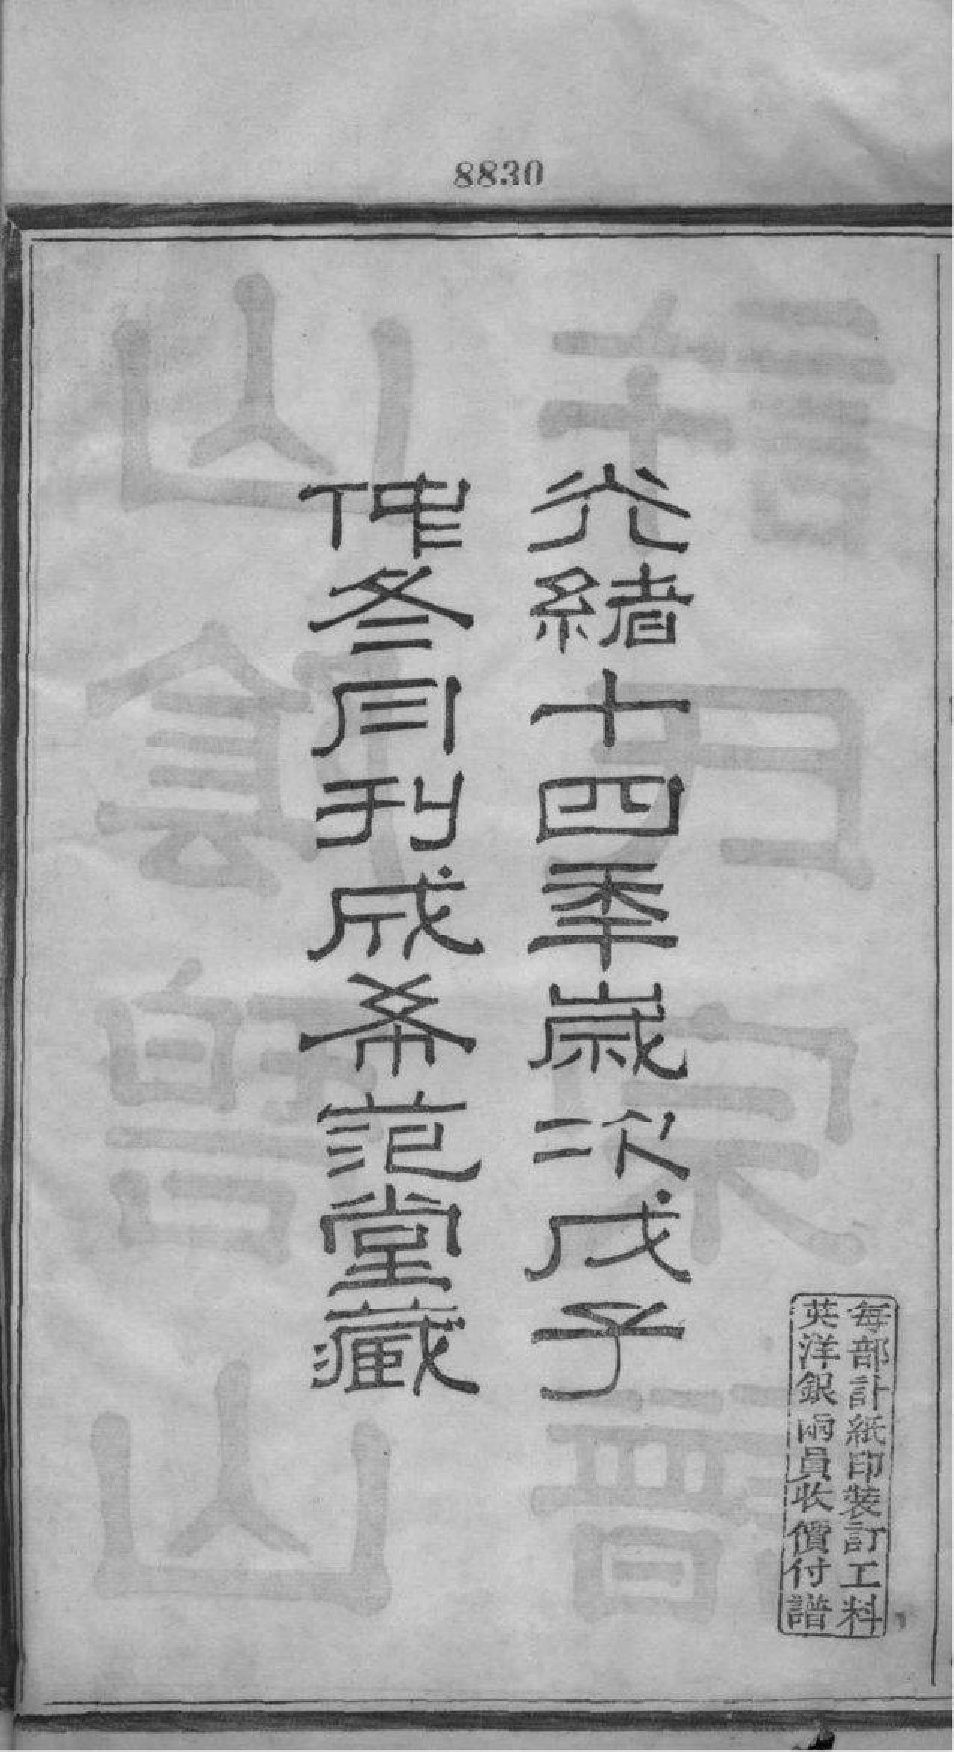 8830
光緒十四秊歲次戊子
仲冬月刊成希范堂藏
每部計紙印裝訂工料
英洋銀兩員收價付譜